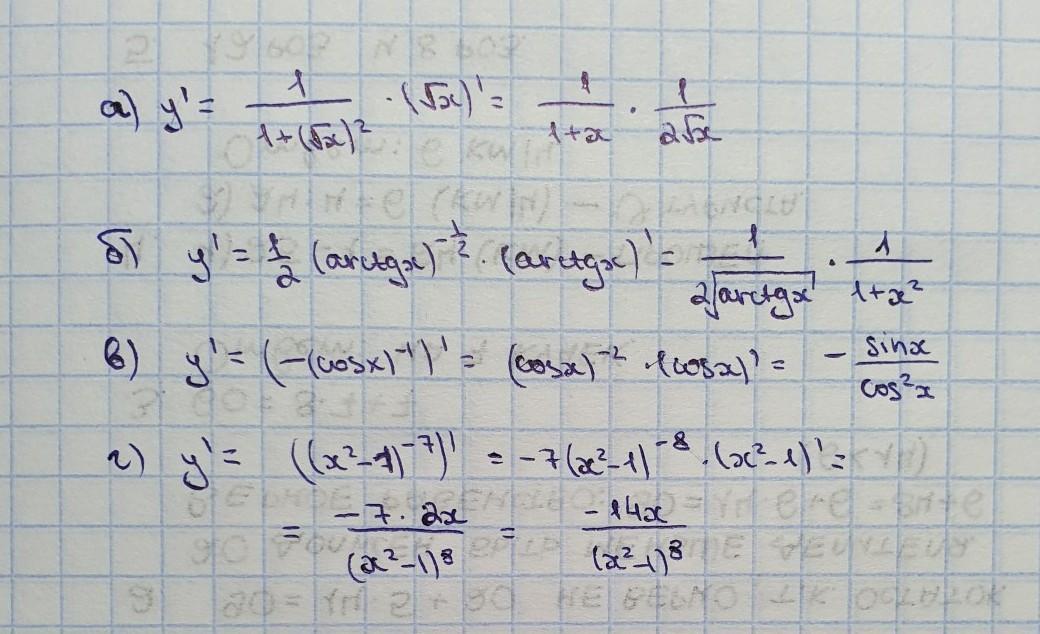 а) y' = 1/(1+(√x)²) · (√x)' = 1/(1+x) · 1/(2√x)
б) y' = 1/2 (arctgx)^(-1/2) · (arctgx)' = 1/(2√(arctgx)) · 1/(1+x²)
в) y' = (-(cosx)⁻¹)' = (cosx)⁻² · (cosx)' = - sinx/cos²x
г) y' = ((x²-1)⁻⁷)' = -7(x²-1)⁻⁸ · (x²-1)' =
= (-7·2x)/(x²-1)⁸ = (-14x)/(x²-1)⁸